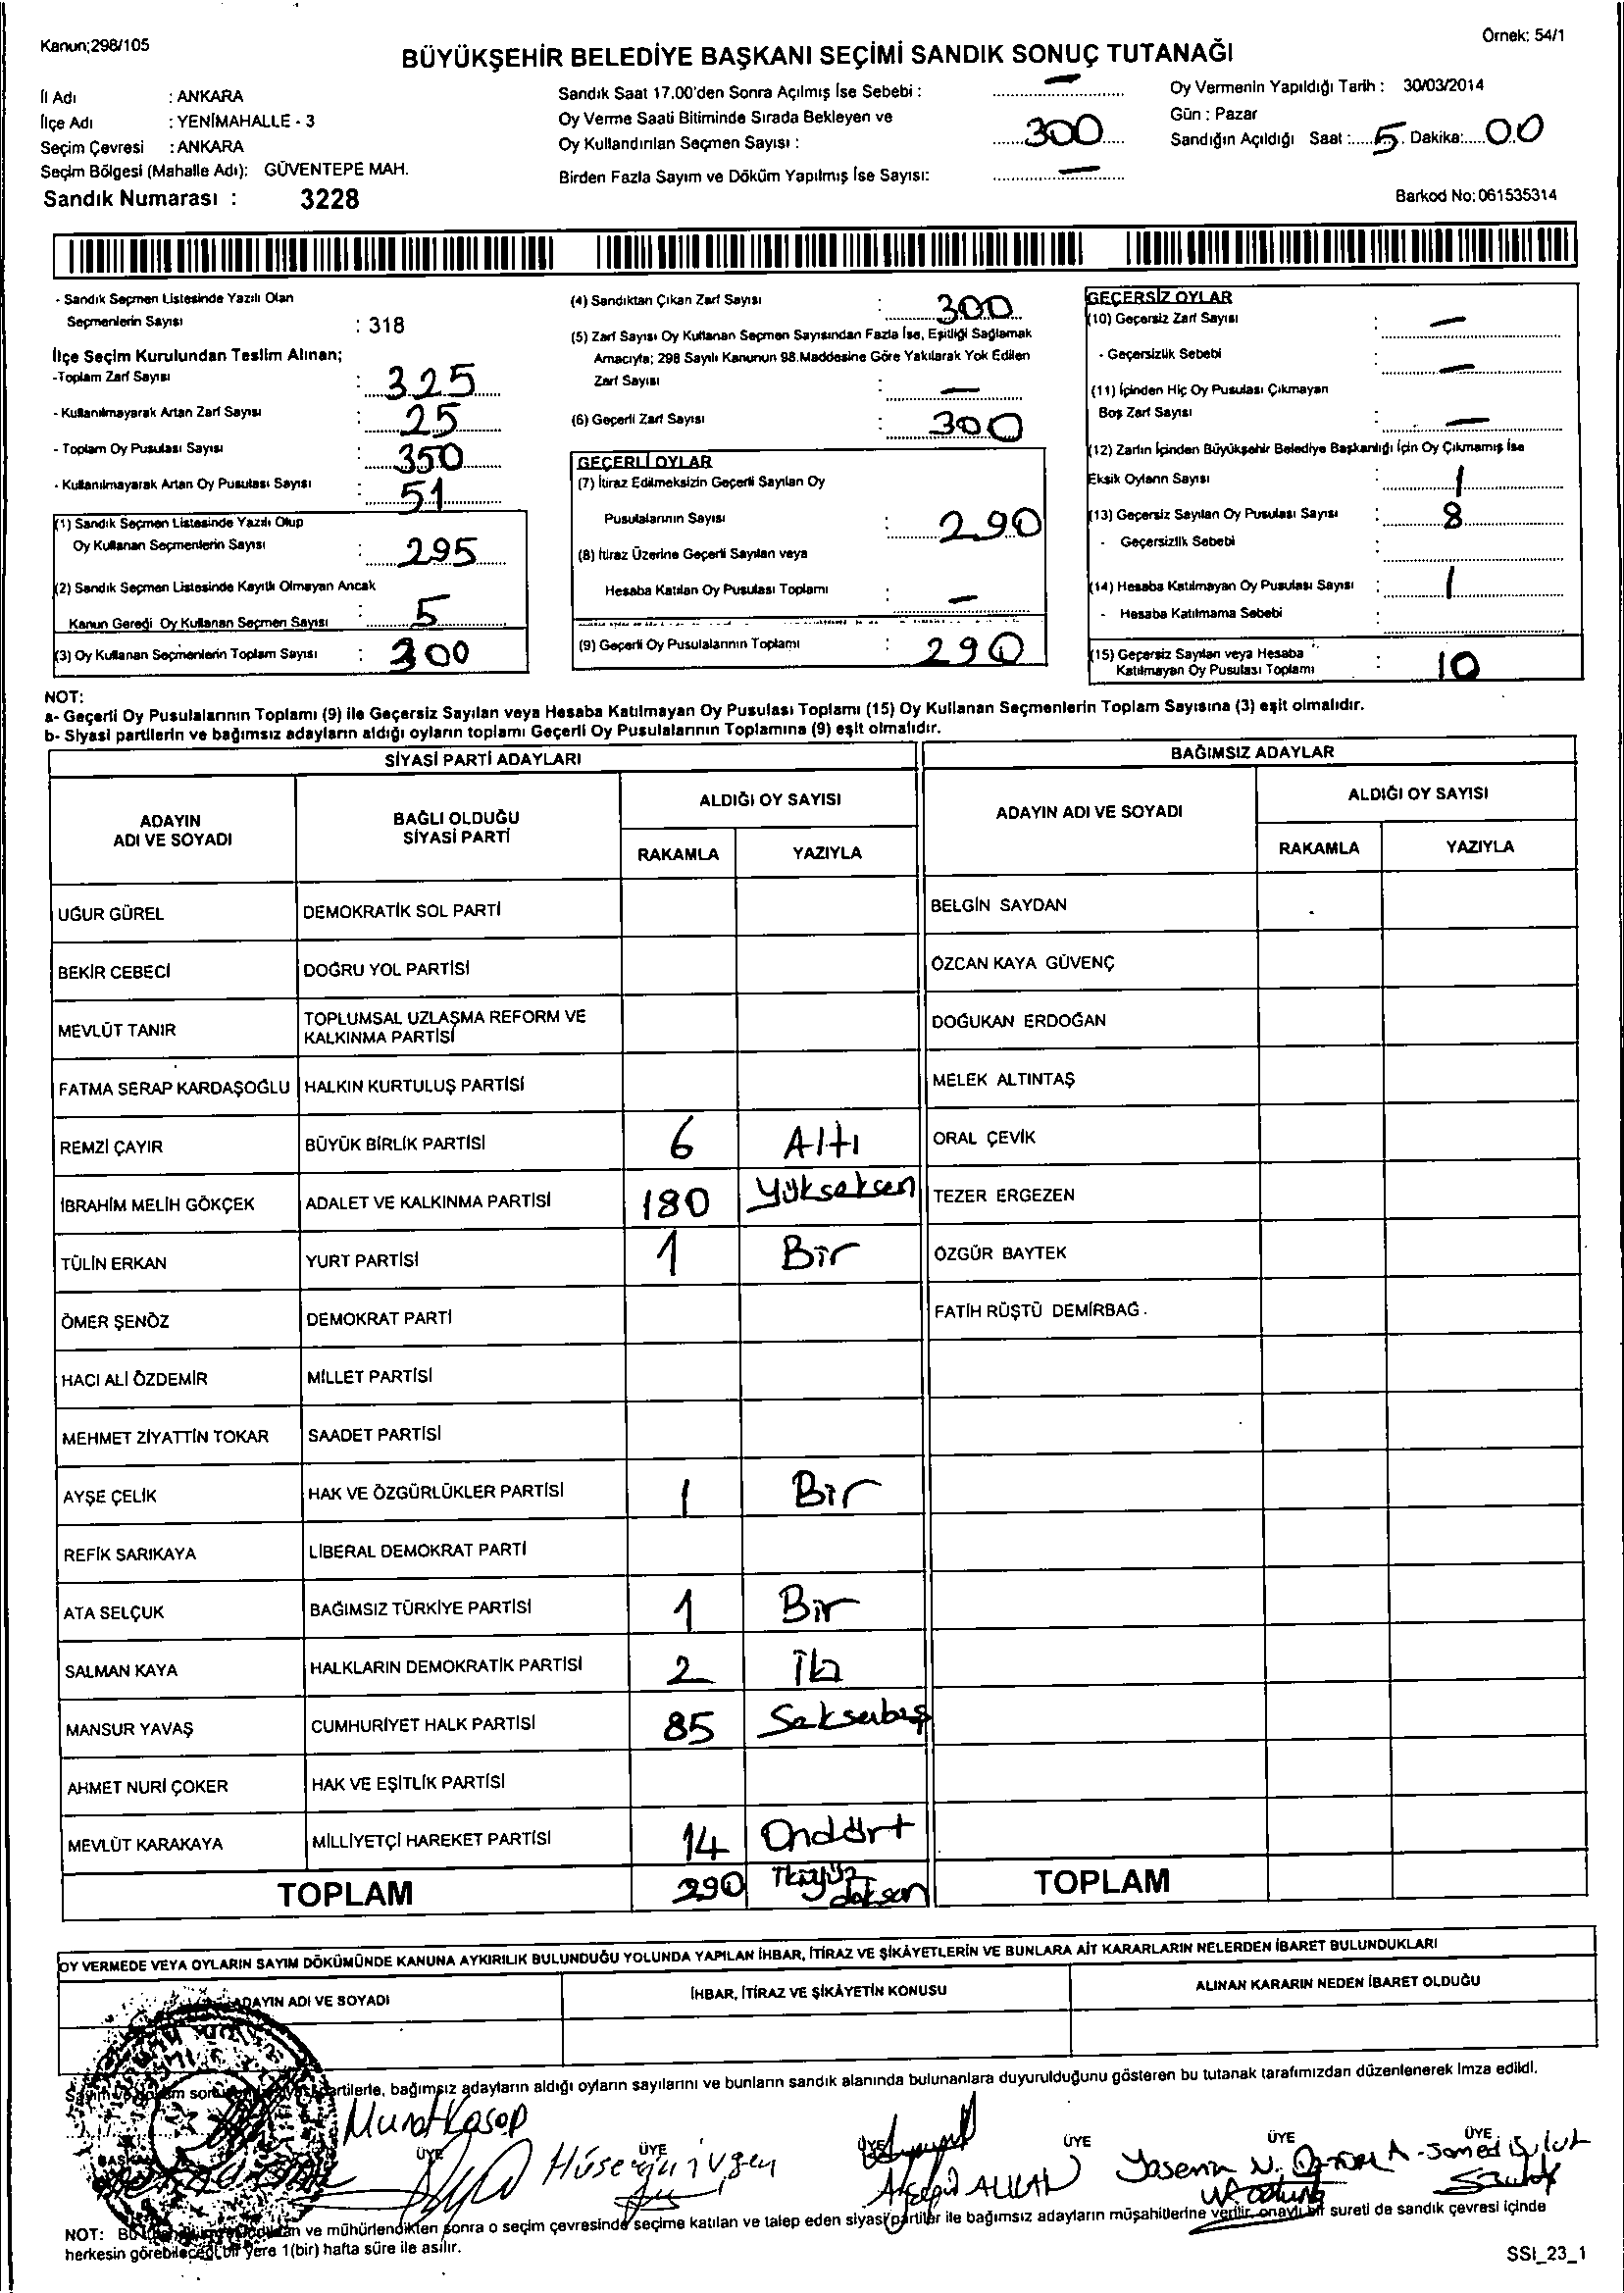 Kanun;298/105
Örnek: 54/1
BÜYÜKŞEHİR BELEDİYE BAŞKANI SEÇİMİ SANDIK SONUÇ TUTANAĞI
İl Adı : ANKARA
İlçe Adı : YENİMAHALLE - 3
Seçim Çevresi : ANKARA
Seçim Bölgesi (Mahalle Adı): GÜVENTEPE MAH.
Sandık Numarası : 3228
Sandık Saat 17.00'den Sonra Açılmış İse Sebebi : —
Oy Verme Saati Bitiminde Sırada Bekleyen ve
Oy Kullandırılan Seçmen Sayısı : 300
Birden Fazla Sayım ve Döküm Yapılmış İse Sayısı: —
Oy Vermenin Yapıldığı Tarih : 30/03/2014
Gün : Pazar
Sandığın Açıldığı Saat : 5 Dakika: 00
Barkod No: 061535314
- Sandık Seçmen Listesinde Yazılı Olan
Seçmenlerin Sayısı : 318
İlçe Seçim Kurulundan Teslim Alınan;
-Toplam Zarf Sayısı : 325
- Kullanılmayarak Artan Zarf Sayısı : 25
- Toplam Oy Pusulası Sayısı : 350
- Kullanılmayarak Artan Oy Pusulası Sayısı : 51
(1) Sandık Seçmen Listesinde Yazılı Olup
Oy Kullanan Seçmenlerin Sayısı : 295
(2) Sandık Seçmen Listesinde Kayıtlı Olmayan Ancak
Kanun Gereği Oy Kullanan Seçmen Sayısı : 5
(3) Oy Kullanan Seçmenlerin Toplam Sayısı : 300
(4) Sandıktan Çıkan Zarf Sayısı : 300
(5) Zarf Sayısı Oy Kullanan Seçmen Sayısından Fazla İse, Eşitliği Sağlamak
Amacıyla; 298 Sayılı Kanunun 98.Maddesine Göre Yakılarak Yok Edilen
Zarf Sayısı : —
(6) Geçerli Zarf Sayısı : 300
GEÇERLİ OYLAR
(7) İtiraz Edilmeksizin Geçerli Sayılan Oy
Pusulalarının Sayısı : 290
(8) İtiraz Üzerine Geçerli Sayılan veya
Hesaba Katılan Oy Pusulası Toplamı : —
(9) Geçerli Oy Pusulalarının Toplamı : 290
GEÇERSİZ OYLAR
(10) Geçersiz Zarf Sayısı : —
- Geçersizlik Sebebi : —
(11) İçinden Hiç Oy Pusulası Çıkmayan
Boş Zarf Sayısı : —
(12) Zarfın İçinden Büyükşehir Belediye Başkanlığı İçin Oy Çıkmamış İse
Eksik Oyların Sayısı : 1
(13) Geçersiz Sayılan Oy Pusulası Sayısı : 8
- Geçersizlik Sebebi :
(14) Hesaba Katılmayan Oy Pusulası Sayısı : 1
- Hesaba Katılmama Sebebi :
(15) Geçersiz Sayılan veya Hesaba
Katılmayan Oy Pusulası Toplamı : 10
NOT:
a- Geçerli Oy Pusulalarının Toplamı (9) ile Geçersiz Sayılan veya Hesaba Katılmayan Oy Pusulası Toplamı (15) Oy Kullanan Seçmenlerin Toplam Sayısına (3) eşit olmalıdır.
b- Siyasi partilerin ve bağımsız adayların aldığı oyların toplamı Geçerli Oy Pusulalarının Toplamına (9) eşit olmalıdır.
SİYASİ PARTİ ADAYLARI
BAĞIMSIZ ADAYLAR
ADAYIN ADI VE SOYADI
BAĞLI OLDUĞU SİYASİ PARTİ
ALDIĞI OY SAYISI
RAKAMLA YAZIYLA
ADAYIN ADI VE SOYADI
ALDIĞI OY SAYISI
RAKAMLA YAZIYLA
UĞUR GÜREL DEMOKRATİK SOL PARTİ BELGİN SAYDAN
BEKİR CEBECİ DOĞRU YOL PARTİSİ ÖZCAN KAYA GÜVENÇ
MEVLÜT TANIR TOPLUMSAL UZLAŞMA REFORM VE KALKINMA PARTİSİ DOĞUKAN ERDOĞAN
FATMA SERAP KARDAŞOĞLU HALKIN KURTULUŞ PARTİSİ MELEK ALTINTAŞ
REMZİ ÇAYIR BÜYÜK BİRLİK PARTİSİ 6 Altı ORAL ÇEVİK
İBRAHİM MELİH GÖKÇEK ADALET VE KALKINMA PARTİSİ 180 Yükseksen TEZER ERGEZEN
TÜLİN ERKAN YURT PARTİSİ 1 Bir ÖZGÜR BAYTEK
ÖMER ŞENÖZ DEMOKRAT PARTİ FATİH RÜŞTÜ DEMİRBAĞ
HACI ALİ ÖZDEMİR MİLLET PARTİSİ
MEHMET ZİYATTİN TOKAR SAADET PARTİSİ
AYŞE ÇELİK HAK VE ÖZGÜRLÜKLER PARTİSİ 1 Bir
REFİK SARIKAYA LİBERAL DEMOKRAT PARTİ
ATA SELÇUK BAĞIMSIZ TÜRKİYE PARTİSİ 1 Bir
SALMAN KAYA HALKLARIN DEMOKRATİK PARTİSİ 2 İki
MANSUR YAVAŞ CUMHURİYET HALK PARTİSİ 85 Seksenbeş
AHMET NURİ ÇOKER HAK VE EŞİTLİK PARTİSİ
MEVLÜT KARAKAYA MİLLİYETÇİ HAREKET PARTİSİ 14 Ondört
TOPLAM 290 İkiyüz doksan TOPLAM
OY VERMEDE VEYA OYLARIN SAYIM DÖKÜMÜNDE KANUNA AYKIRILIK BULUNDUĞU YOLUNDA YAPILAN İHBAR, İTİRAZ VE ŞİKÂYETLERİN VE BUNLARA AİT KARARLARIN NELERDEN İBARET BULUNDUKLARI
ADAYIN ADI VE SOYADI İHBAR, İTİRAZ VE ŞİKÂYETİN KONUSU ALINAN KARARIN NEDEN İBARET OLDUĞU
partilerle, bağımsız adayların aldığı oyların sayılarını ve bunların sandık alanında bulunanlara duyurulduğunu gösteren bu tutanak tarafımızdan düzenlenerek imza edildi.
Murat Kasap
BAŞKAN ÜYE ÜYE ÜYE ÜYE ÜYE ÜYE
Yasemin N.
NOT: ve mühürlendikten sonra o seçim çevresinde seçime katılan ve talep eden siyasi partiler ile bağımsız adayların müşahitlerine verilir, onaylı bir sureti de sandık çevresi içinde
herkesin görebileceği bir yere 1(bir) hafta süre ile asılır.
SSI_23_1